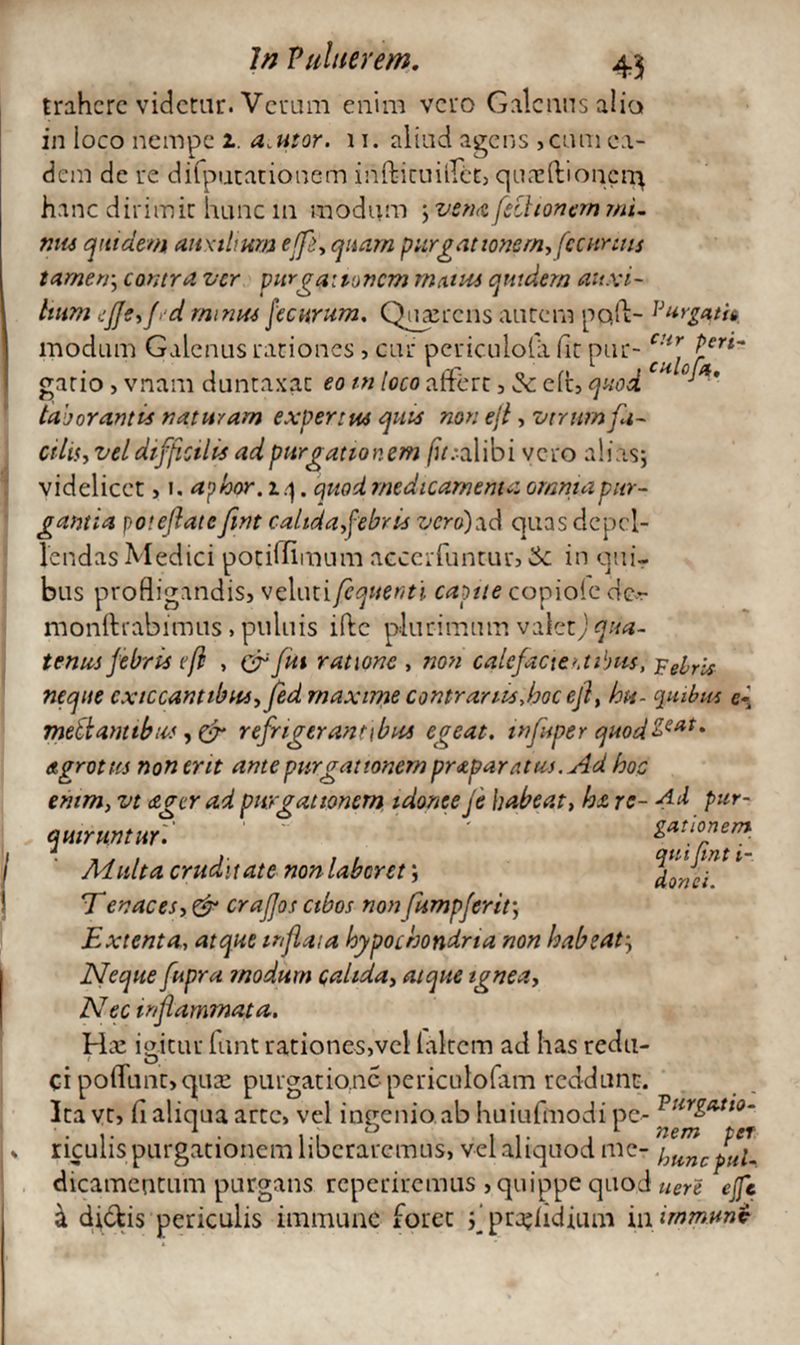 In Puluerem. 43
trahere videtur. Verum enim vero Galenus alio
in loco nempe 2. acutor. 11. aliud agens, cum ea-
dem de re disputationem instituisset, quæstionem
hanc dirimit hunc in modum; venæ sectionem mi-
nus quidem auxilium esse, quam purgationem, securius
tamen; contra ver purgationem maius quidem auxi-
lium esse, sed minus securum. Quærens autem post-
modum Galenus rationes, cur periculosa sit pur-
gatio, vnam duntaxat eo in loco affert, & est, quod
laborantis naturam expertus quis non est, vtrum fa-
cilis, vel difficilis ad purgationem sit: alibi vero alias;
videlicet, 1. aphor. 24. quod medicamenta omnia pur-
gantia potestate sint calida, febris vero) ad quas depel-
lendas Medici potissimum accersuntur, & in qui-
bus profligandis, veluti sequenti capite copiose de-
monstrabimus, puluis iste plurimum valet) qua-
tenus febris est, & sui ratione, non calefacientibus,
neque exiccantibus, sed maxime contrariis, hoc est, hu-
mectantibus, & refrigerantibus egeat. insuper quod
ægrotus non erit ante purgationem præparatus. Ad hoc
enim, vt æger ad purgationem idonee se habeat, hæ re-
quiruntur.
Multa cruditate non laboret;
Tenaces, & crassos cibos non sumpserit;
Extenta, atque inflata hypochondria non habeat;
Neque supra modum calida, atque ignea,
Nec inflammata.
Hæ igitur sunt rationes, vel saltem ad has redu-
ci possunt, quæ purgationē periculosam reddunt.
Ita vt, si aliqua arte, vel ingenio ab huiusmodi pe-
riculis purgationem liberaremus, vel aliquod me-
dicamentum purgans reperiremus, quippe quod
à dictis periculis immune foret; præsidium in
Purgatio
cur peri-
culosa.
Febris
quibus e-
geat.
Ad pur-
gationem
qui sint i-
donei.
Purgatio-
nem per
hunc pul-
uerē esse
immunē